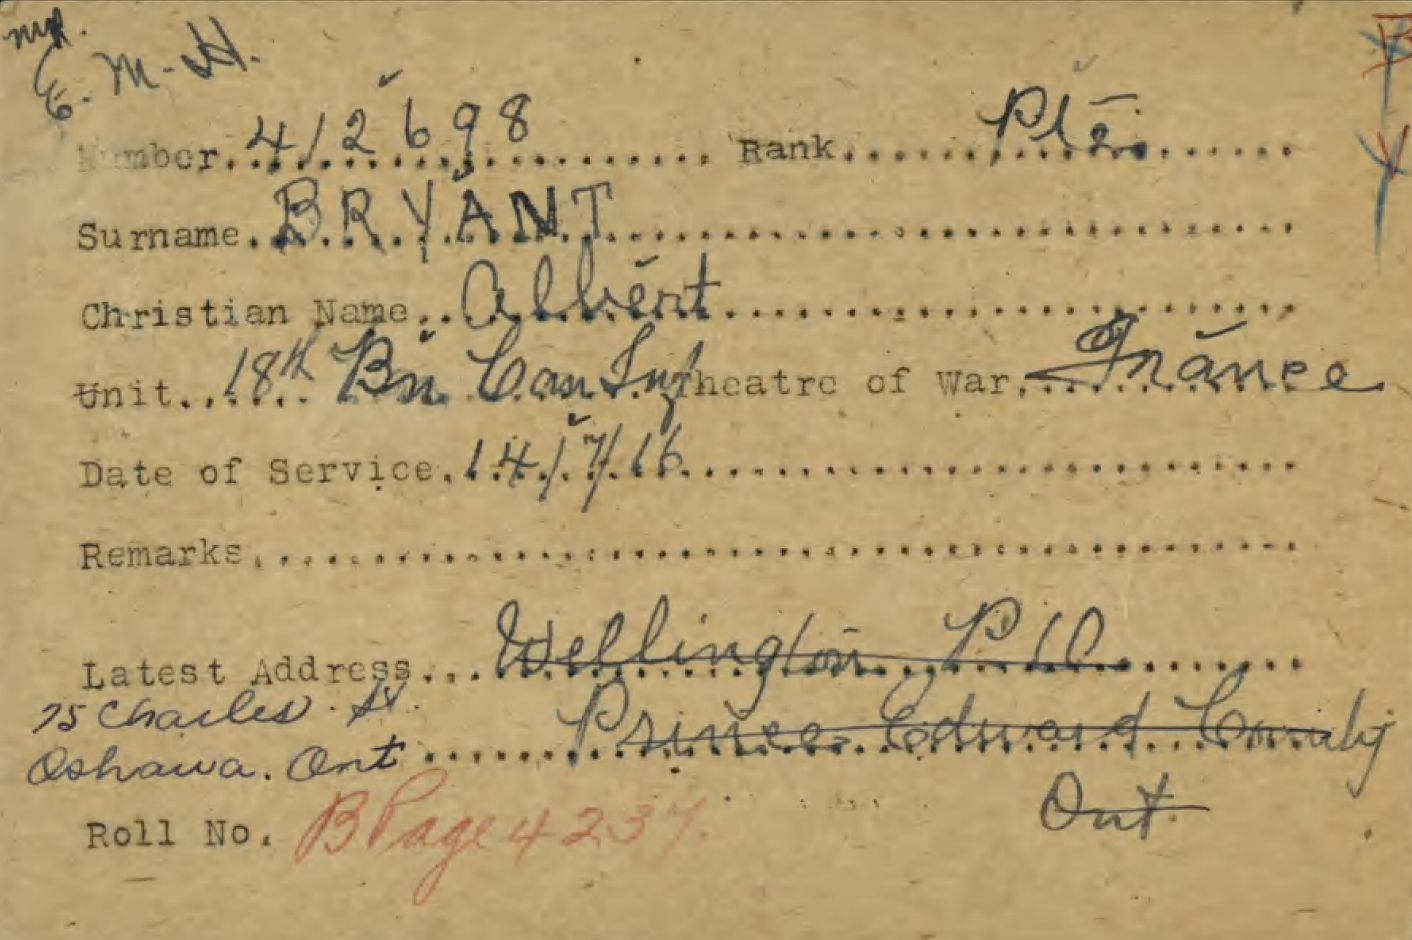 E. M. H.
Number 412698 Rank Pte.
Surname BRYANT
Christian Name Albert
Unit 18th Bn. Can Inf Theatre of War France
Date of Service 14/7/16
Remarks
Latest Address Wellington P.O.
75 Charles St. Prince Edward County
Oshawa. Ont Ont.
Roll No. B Page 4237.